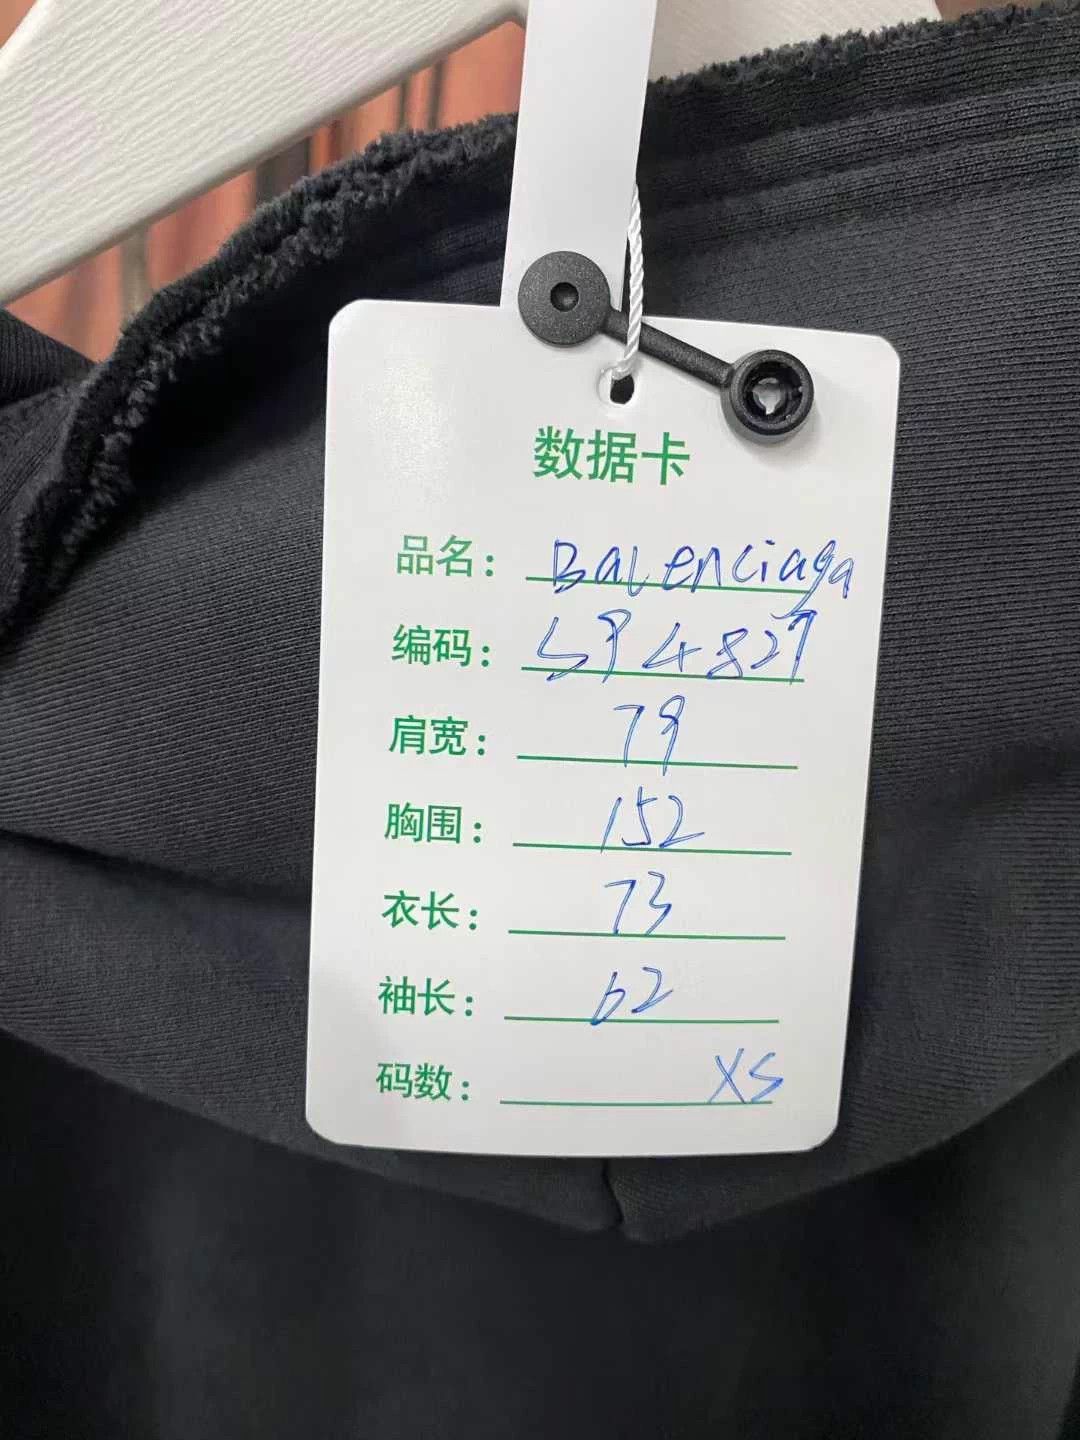 数据卡
品名: Balenciaga
编码: 594827
肩宽: 79
胸围: 152
衣长: 73
袖长: 62
码数: XS